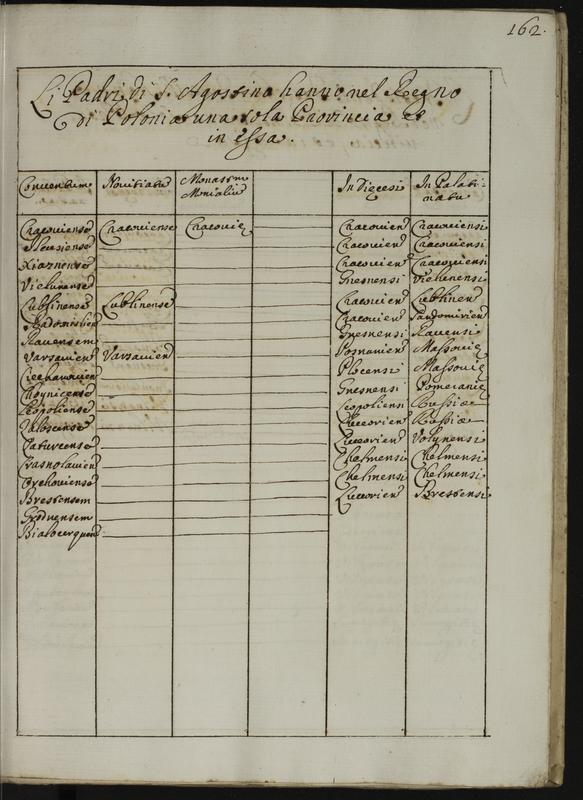 162.
Li Padri di S. Agostino hanno nel Regno
di Polonia una sola Provincia et
in essa.
Conventum Novitiatu Monastm Monialiu In Dięcesi In Palati-natu
Cracoviense Cracoviense Cracovię Cracovien Cracoviensi
Ilcusiense Cracovien Cracoviensi
Xiaznense Cracovien Cracoviensi
Vielunense Gnesnensi Vielunensi
Lublinense Lublinense Cracovien Lublinen
Radomislien Cracovien Sandomirien
Ravensem Gnesnensi Ravensi
Varsavien Varsavien Posnanien Massovię
Ciechanovien Plocensi Massovię
Choynicense Gnesnensi Pomeranię
Leopoliense Leopoliensi Russiæ
Luceorien Russiæ
Zaturcense Luceorien Volynensi
Crasnostavien Chelmensi Chelmensi
Orchoviense Chelmensi Chelmensi
Brestensem Luceorien Brestensi
Grodnensem
Bialocerquen